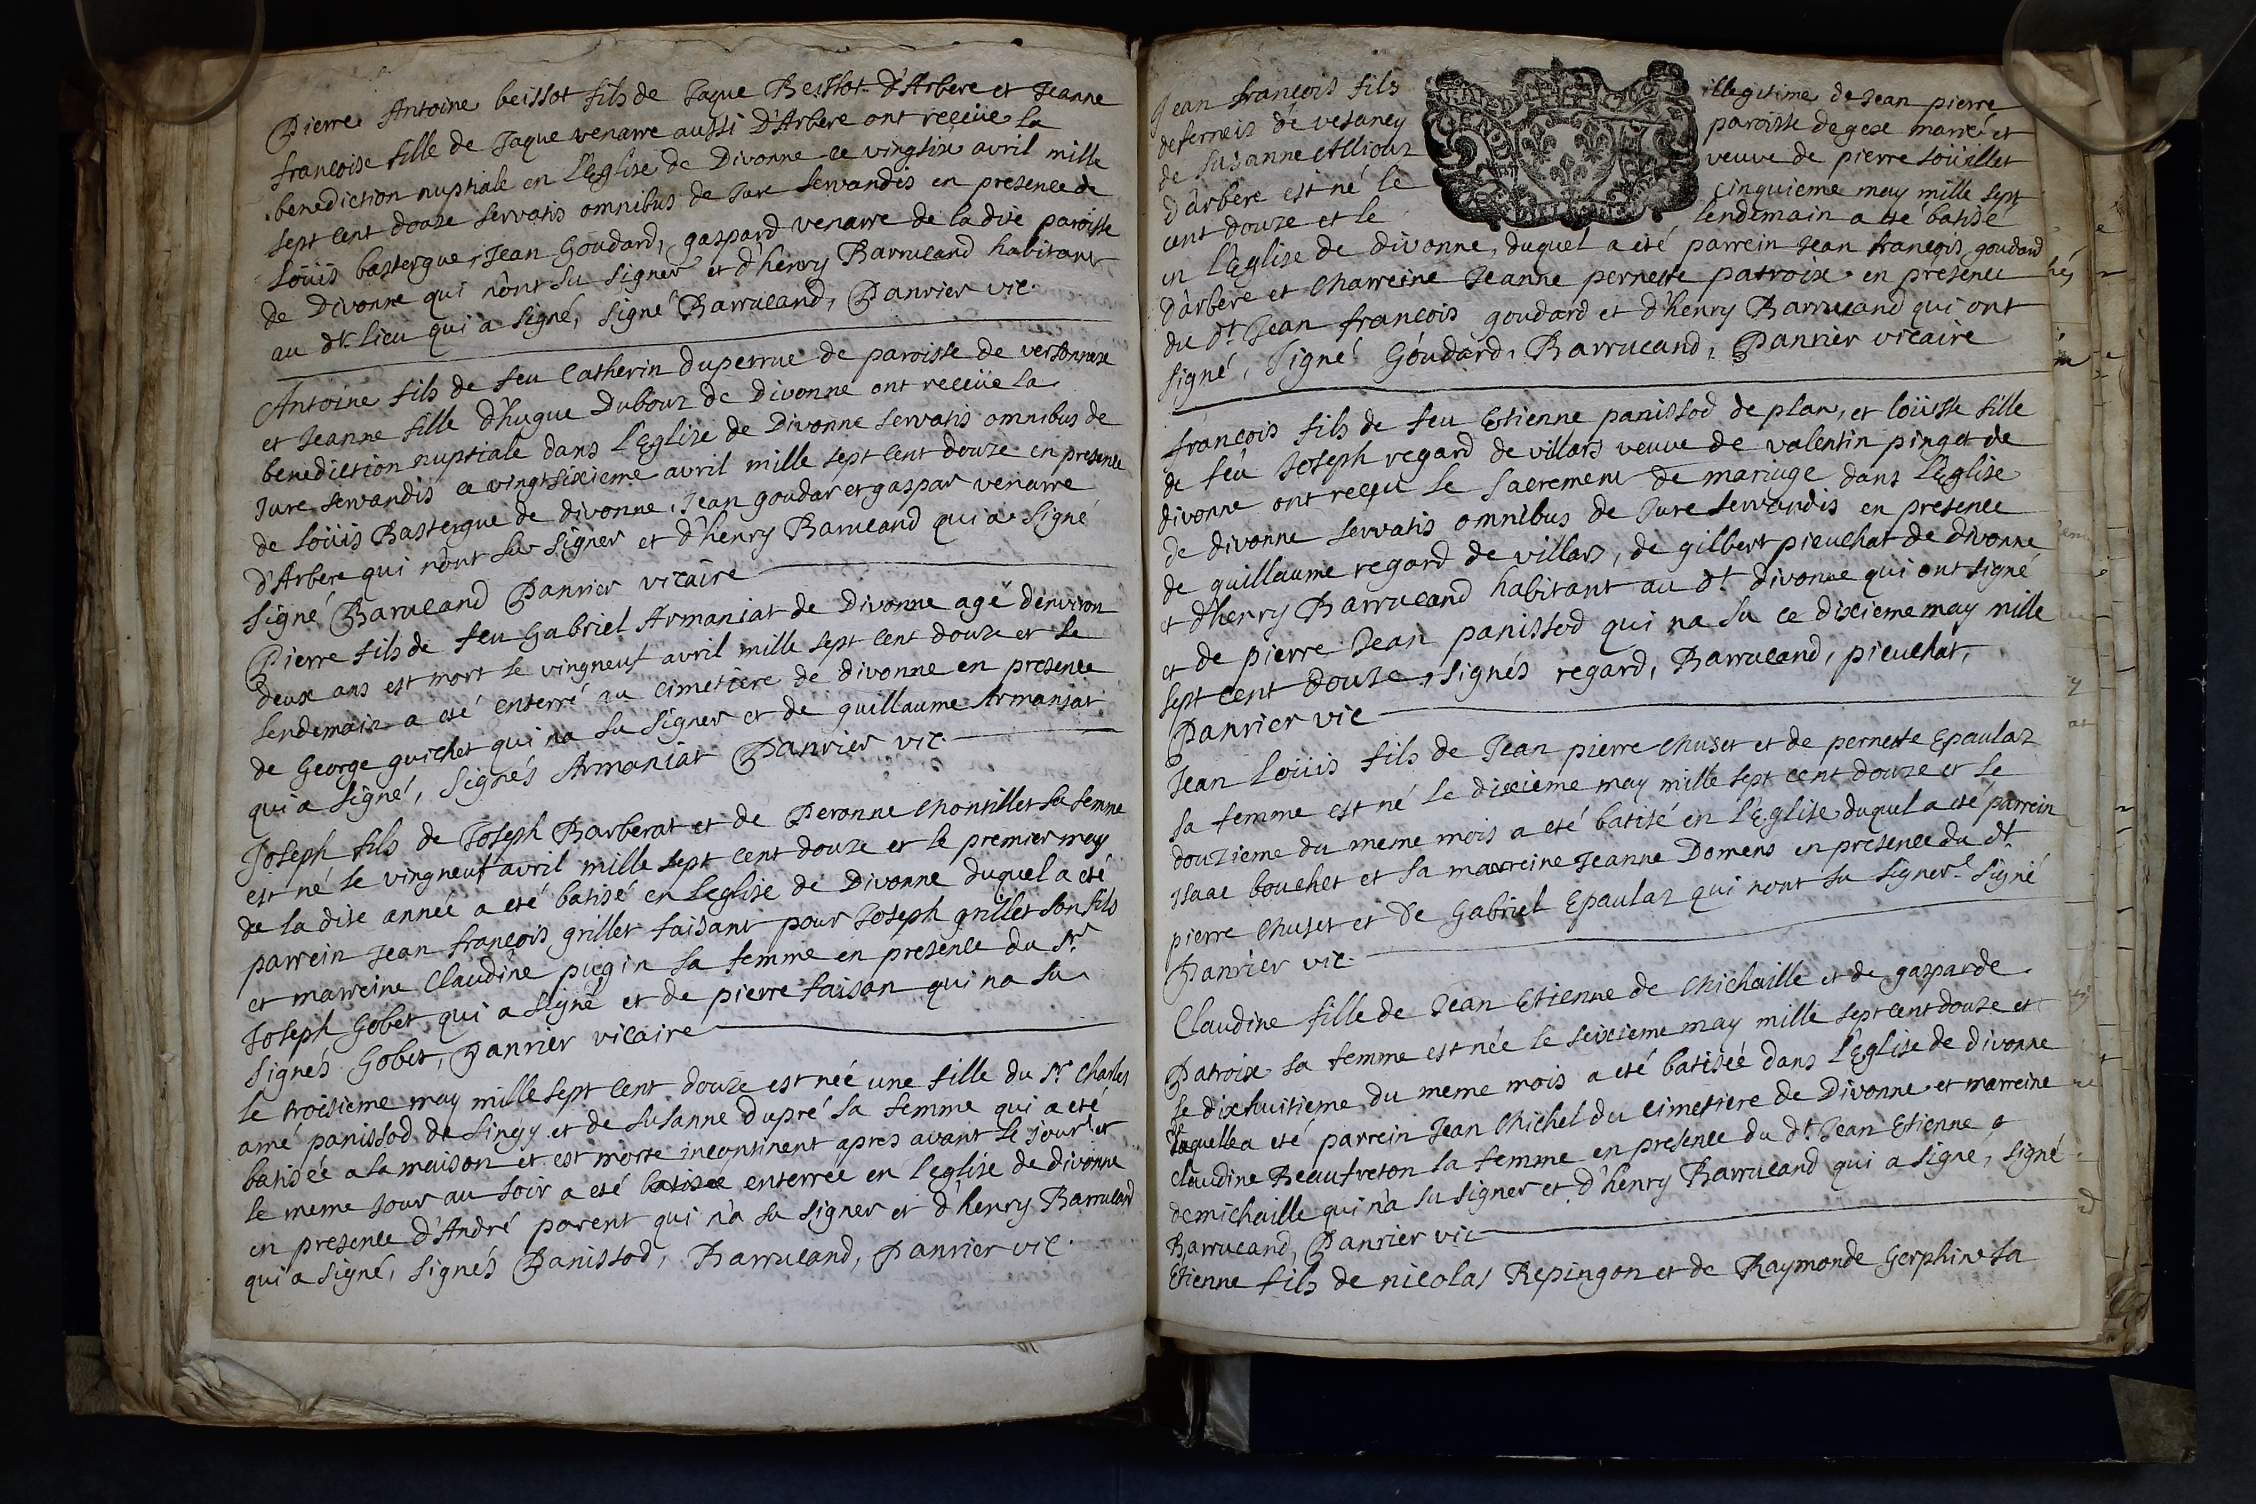 Pierre Antoine beissot fils de Jaque Beissot d'Arbere et Jeanne
françoise fille de Jaque venarre aussi D'Arbere ont reçeüe la
benediction nuptiale en l'Eglise de Divonne ce vingtsix avril mille
sept cent douze servatis omnibus de Jure servandis en presence de
Loüis bastergue, Jean Goudard, gaspard venarre de la dite paroisse
de Divonne qui n'ont su signer et d'henry Barrucand habitant
au dt. lieu qui a signé, signé Barrucand, Panrier vic.
Antoine fils de feu Catherin duperrue de paroisse de
et Jeanne fille d'hugue Dubouz de Divonne ont reçeüe la
benediction nuptiale dans l'Eglise de Divonne servatis omnibus de
Jure servandis ce vingtsixieme avril mille sept cent douze en presence
de Loüis Bastergue de divonne, Jean goudar et gaspar venarre
d'Arbere qui n'ont su signer et d'henry Barrucand qui a signé
signé Barucand Panrier vicaire
Pierre fils de feu Gabriel Armaniat de Divonne agé d'environ
deux ans est mort le vingneuf avril mille sept cent douze et le
lendemain a eté enterré au cimetiere de divonne en presence
de George guichet qui na su signer et de guillaume Armaniat
qui a signé, signés Armaniat Panrier vic.
Joseph fils de Joseph Barberat et de Peronne Montillet sa femme
est né le vingneuf avril mille sept cent douze et le premier may
de la dite année a eté batisé en l'eglise de Divonne duquel a eté
parrein Jean françois grillet faisant pour Joseph grillet son fils
et marreine Claudine pugin sa femme en presence du Sr.
Joseph Gobet qui a signé et de pierre faisan qui na su
signés Gobet, Panrier vicaire
le troisieme may mille sept cent douze est née une fille du Sr. Charles
amé panissod de Singy et de Susanne dupré sa femme qui a eté
batisée a la maison et est morte incontinent apres avant le jour et
le meme jour au soir a eté batisée enterrée en l'eglise de divonne
en presence d'André parent qui n'a su signer et d'henry Barrucand
qui a signé, signés Panissod, Barrucand, Panrier vic.
Jean françois fils illegitime de Jean pierre
deferneix de vesancy paroisse de gex marié et
de Susanne veuve de pierre soüillet
d'arbere est né le cinquieme may mille sept
cent douze et le lendemain a eté batisé
en l'Eglise de divonne, duquel a eté parrein Jean françois goudard
d'arbere et marreine Jeanne pernette patroix en presence
du dt. Jean françois goudard et d'henry Barrucand qui ont
signé, signé Goudard, Barrucand, Panrier vicaire
françois fils de feu Etienne panissod de plan, et loüise fille
de feu Joseph regard de villars veuve de valentin pinget de
divonne ont reçeu le sacrement de mariage dans l'Eglise
de divonne servatis omnibus de Jure servandis en presence
de guillaume regard de villars, de gilbert pieuchat de divonne
et d'henry Barrucand habitant au dt divonne qui ont signé
et de pierre Jean panissod qui na su ce dixieme may mille
sept cent douze, signés regard, Barrucand, pieuchat,
Panrier vic
Jean Loüis fils de Jean pierre Muset et de pernette Epaulaz
sa femme est né le dixieme may mille sept cent douze et le
douzieme du meme mois a eté batisé en l'Eglise duquel a eté parrein
Isaac bouchet et sa marreine Jeanne Domens en presence du dt.
pierre Muset et de Gabriel Epaulaz qui nont su signer. signé
Panrier vic.
Claudine fille de Jean Etienne de Michaille et de gasparde
Patroix sa femme est née le seixieme may mille sept cent douze et
le dixhuitieme du meme mois a eté batisée dans l'Eglise de divonne
laquelle a eté parrein Jean Michel du cimetiere de Divonne et marreine
claudine Beaufreton sa femme en presence du dt. Jean Etienne
de michaille qui n'a su signer et d'henry Barrucand qui a signé, signé
Barrucand, Panrier vic
Etienne fils de nicolas Repingon et de Raymonde Gerphine sa